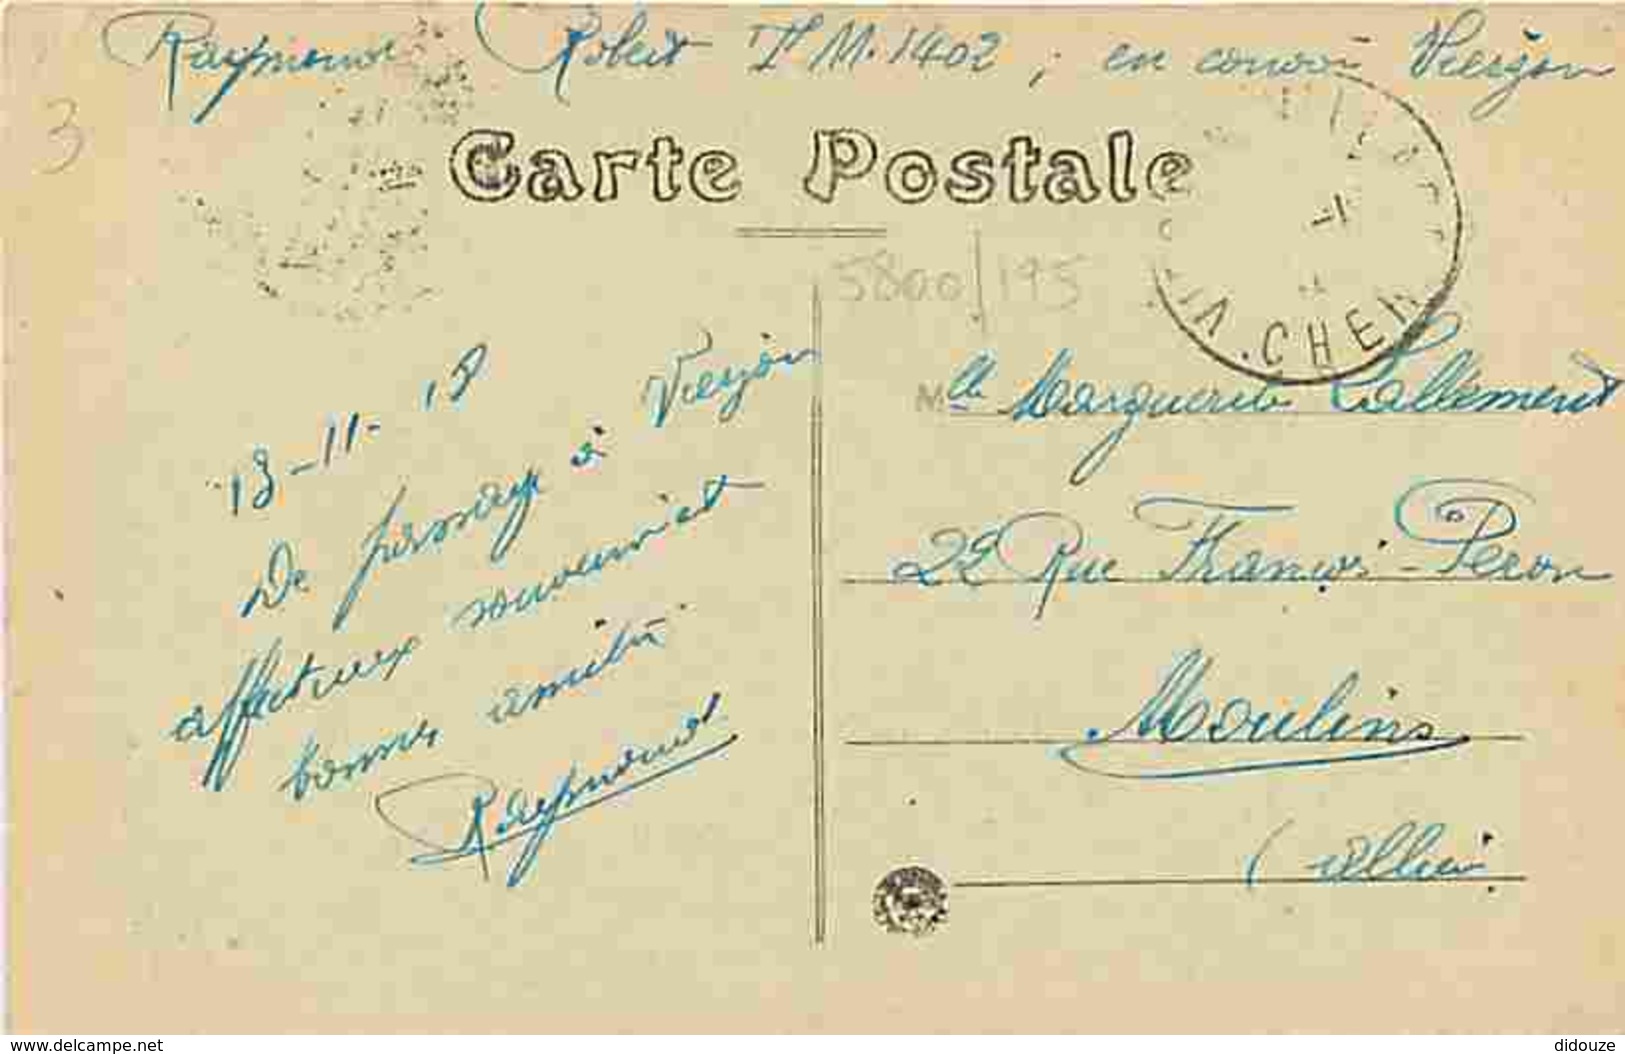 Raymond Robert TM. 1402 ; en convoi Vierzon
3
Carte Postale
5800/195
CHER
13-11-18
De passage à Vierzon
affectueux souvenir et
bonnes amitiés
Raymond
Mlle Marguerite Lallement
22 Rue François-Peron
Moulins
(Allier
www.delcampe.net
didouze